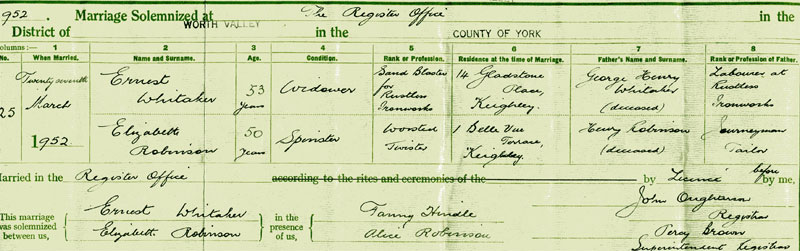 1952. Marriage Solemnized at The Register Office in the
District of WORTH VALLEY in the COUNTY OF YORK
Columns :— 1 2 3 4 5 6 7 8
No. When Married. Name and Surname. Age. Condition. Rank or Profession. Residence at the time of Marriage. Father's Name and Surname. Rank or Profession of Father.
Twenty seventh Ernest 53 Widower Sand Blaster 14 Gladstone George Henry Labourer at
March Whitaker years for Rustless Place, Whitaker Rustless
25 Ironworks Keighley. (deceased) Ironworks
1952. Elizabeth 50 Spinster Worsted 1 Belle Vue Henry Robinson Journeyman
Robinson years Twister Terrace, (deceased) Tailor
Keighley.
Married in the Register Office according to the rites and ceremonies of the by Licence before by me,
This marriage was solemnized between us, Ernest Whitaker
Elizabeth Robinson
in the presence of us, Fanny Hindle
Alice Robinson
John
Registrar
Percy Brown
Superintendent Registrar